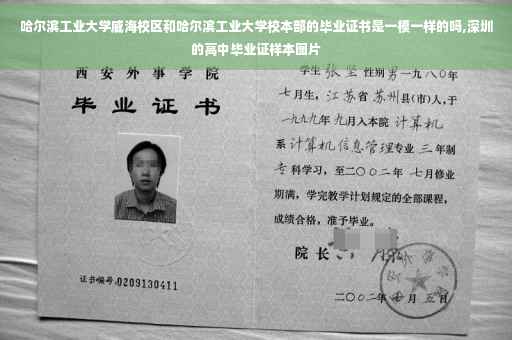 哈尔滨工业大学威海校区和哈尔滨工业大学校本部的毕业证书是一模一样的吗,深圳
的高中毕业证样本图片
西安外事学院
毕业证书
证书编号:0209130411
学生 张坚 性别 男 一九八〇年
七月生，江苏省 苏州 县(市)人,于
一九九九年 九月入本院 计算机
系 计算机信息管理 专业 三 年制
专 科学习，至二〇〇二年 七月修业
期满，学完教学计划规定的全部课程，
成绩合格，准予毕业。
院长
二〇〇二年 七月 五日